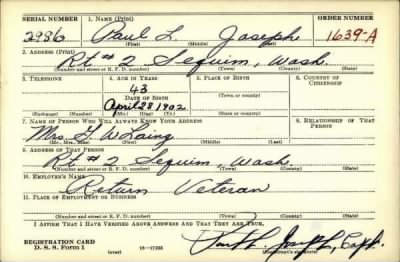 SERIAL NUMBER 1. NAME (Print) ORDER NUMBER
2986 Paul L. Joseph 1639-A
(First) (Middle) (Last)
2. ADDRESS (Print)
Rt # 2 Sequim, Wash.
(Number and street or R. F. D. number) (Town) (County) (State)
3. TELEPHONE 4. AGE IN YEARS 5. PLACE OF BIRTH 6. COUNTRY OF CITIZENSHIP
43
DATE OF BIRTH
(Town or county)
April 28 1902
(Exchange) (No.) (Mo.) (Day) (Yr.) (State or country)
7. NAME OF PERSON WHO WILL ALWAYS KNOW YOUR ADDRESS 8. RELATIONSHIP OF THAT PERSON
Mrs. G. W. Laing
(Mr., Mrs., Miss) (First) (Middle) (Last)
9. ADDRESS OF THAT PERSON
Rt # 2 Sequim, Wash.
(Number and street or R. F. D. number) (Town) (County) (State)
10. EMPLOYER'S NAME
Return Veteran
11. PLACE OF EMPLOYMENT OR BUSINESS
(Number and street or R. F. D. number) (Town) (County) (State)
I AFFIRM THAT I HAVE VERIFIED ABOVE ANSWERS AND THAT THEY ARE TRUE.
REGISTRATION CARD
D. S. S. Form 1 (over) Paul L. Joseph, Capt.
(Registrant's signature)